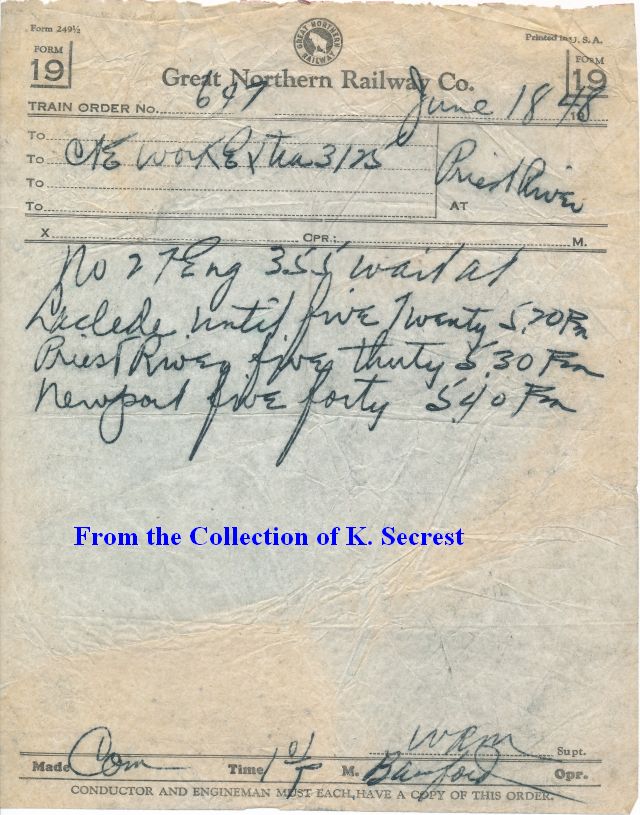 Form 249½
Printed in U. S. A.
FORM
19
GREAT NORTHERN RAILWAY
FORM
19
Great Northern Railway Co.
TRAIN ORDER No. 697 June 18 1948
To
To C&E Work Extra 3125 Priest River
To
To AT
X OPR.; M.
No 27 Eng 355 wait at
Laclede until five Twenty 5.20 Pm
Priest River five thirty 5.30 Pm
Newport five forty 540 Pm
From the Collection of K. Secrest
WRM Supt.
Made Com Time M. Opr.
CONDUCTOR AND ENGINEMAN MUST EACH HAVE A COPY OF THIS ORDER.